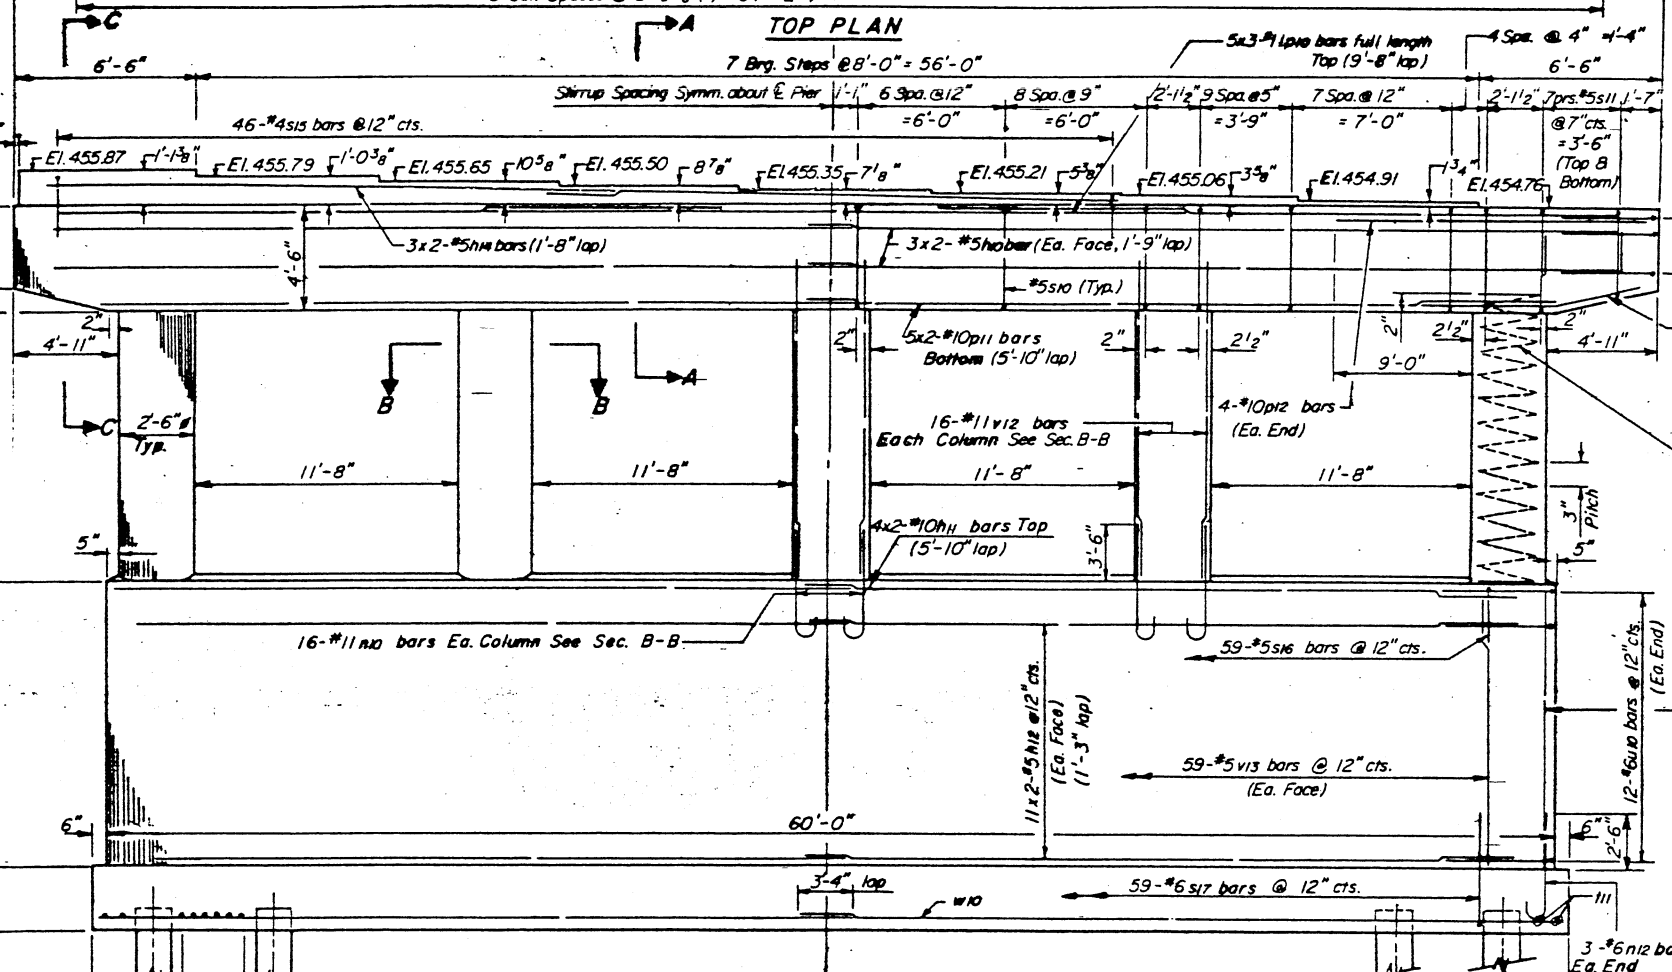 C
A
TOP PLAN
5x3-#11p10 bars full length
Top (9'-8" lap)
4 Spa. @ 4" =1'-4"
6'-6"
7 Brg. Steps @ 8'-0" = 56'-0"
6'-6"
Stirrup Spacing Symm. about ℄ Pier
1'-1"
6 Spa. @ 12"
=6'-0"
8 Spa. @ 9"
=6'-0"
2'-1½"
9 Spa @ 5"
= 3'-9"
7 Spa. @ 12"
= 7'-0"
2'-1½"
7prs.#5s11
@ 7" cts.
= 3'-6"
(Top &
Bottom)
1'-7"
46-#4s15 bars @ 12" cts.
El. 455.87
1'-1⅜"
El. 455.79
1'-0⅜"
El. 455.65
10⅝"
El. 455.50
8⅞"
El. 455.35
7⅛"
El. 455.21
5⅜"
El. 455.06
3⅝"
El. 454.91
1¾"
El. 454.76
3x2-#5h14 bars (1'-8" lap)
4'-6"
3x2-#5h10 bar (Ea. Face, 1'-9" lap)
#5s10 (Typ.)
2"
4'-11"
5x2-#10p11 bars
Bottom (5'-10" lap)
2"
2"
2½"
2"
2½"
2"
4'-11"
9'-0"
B
B
A
C
2'-6" ø
Typ.
4-#10p12 bars
(Ea. End)
16-#11v12 bars
Each Column See Sec. B-B
11'-8"
11'-8"
11'-8"
11'-8"
3"
Pitch
5"
4x2-#10h11 bars Top
(5'-10" lap)
3'-6"
5"
16-#11n10 bars Ea. Column See Sec. B-B
59-#5s16 bars @ 12" cts.
11x2-#5h12 @ 12" cts.
(Ea. Face)
(1'-3" lap)
12-#6u10 bars @ 12" cts.
(Ea. End)
59-#5v13 bars @ 12" cts.
(Ea. Face)
6"
60'-0"
6"
2'-6"
3'-4" lap
w10
59-#6s17 bars @ 12" cts.
t11
3-#6n12 ba
Ea. End